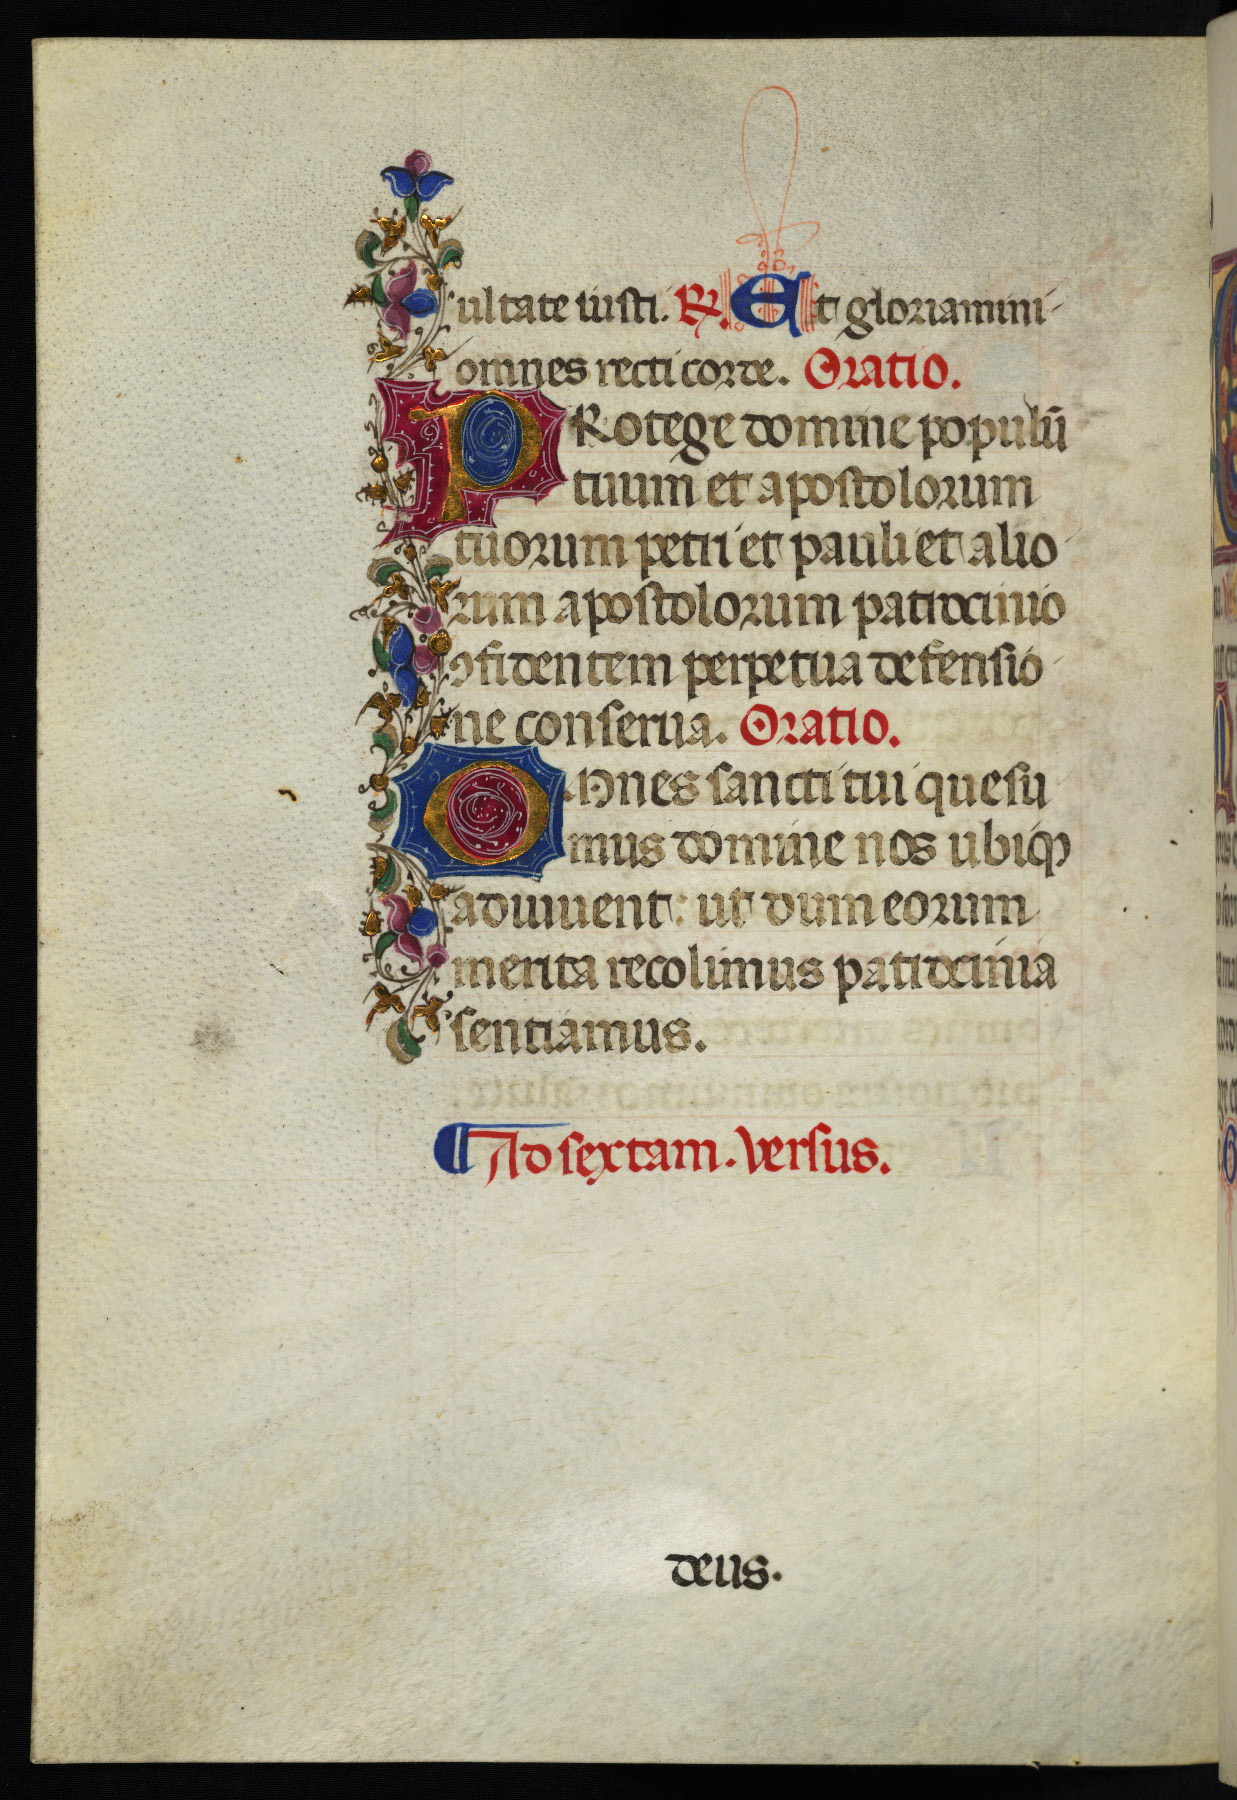 ultate iusti. R. Et gloriamini
omnes recti corde. Oratio.
PRotege domine populū
tuum et apostolorum
tuorum petri et pauli et alio
rum apostolorum patrocinio
ꝯfidentem perpetua defensio
ne conserua. Oratio.
OMnes sancti tui quesu
mus domine nos ubiqꝫ
adiuuent: ut dum eorum
merita recolimus patrocinia
sentiamus.
¶ Ad sextam. Versus.
deus.